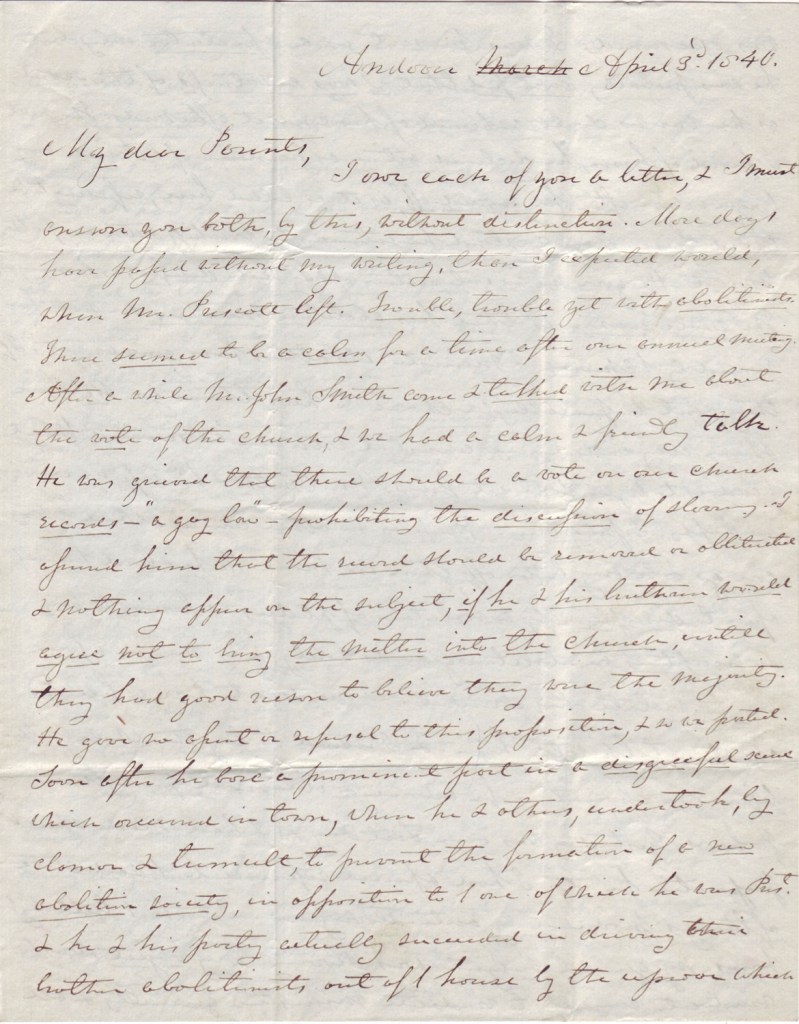 Andover March April 3d. 1840.
My dear Parents,
I owe each of you a letter, & I must
answer you both, by this, without distinction. More days
have passed without my writing, than I expected would,
when Mr. Prescott left. Trouble, trouble yet with abolitionists.
There seemed to be a calm for a time after our annual meeting.
After a while Mr. John Smith came & talked with me about
the vote of the church, & we had a calm & friendly talk.
He was grieved that there should be a vote on our church
records – "a gag law" – prohibiting the discussion of slavery. I
assured him that the record should be removed or obliterated
& nothing appear on the subject, if he & his brethren would
agree not to bring the matter into the church, untill
they had good reason to believe they were the majority.
He gave no assent or refusal to this proposition, & so we parted.
Soon after he bore a prominent part in a disgraceful scene
which occurred in town, when he & others, undertook, by
clamor & tumult, to prevent the formation of a new
abolition society, in opposition to 1 one of which he was Prest.
& he & his party actually succeeded in driving their
brother abolitionists out of 1 house by the uproar which